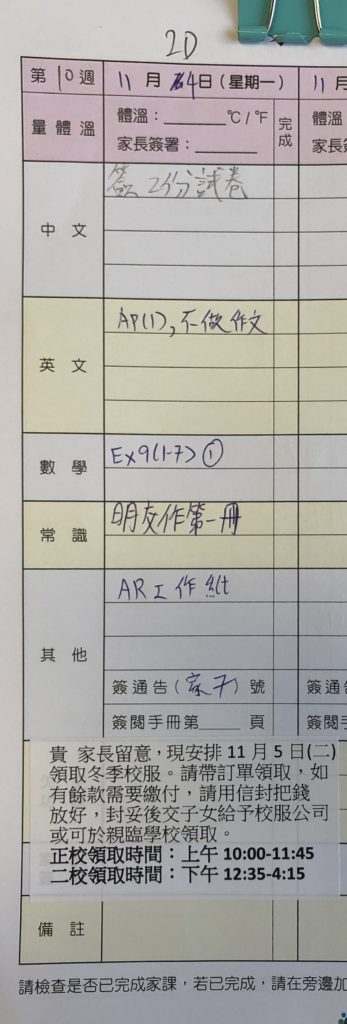 2D
第10週
11月4日(星期一)
11月
量體溫
體溫：________℃/℉
家長簽署：________
完成
體溫
家長簽
中文
簽2份試卷
英文
AP(1),不做作文
數學
Ex9(1-7)①
常識
明交作第一冊
其他
AR工作紙
簽通告(家7)號
簽閱手冊第____頁
簽通告
簽閱手
貴 家長留意，現安排11月5日(二)
領取冬季校服。請帶訂單領取，如
有餘款需要繳付，請用信封把錢
放好，封妥後交子女給予校服公司
或可於親臨學校領取。
正校領取時間：上午 10:00-11:45
二校領取時間：下午 12:35-4:15
備註
請檢查是否已完成家課，若已完成，請在旁邊加